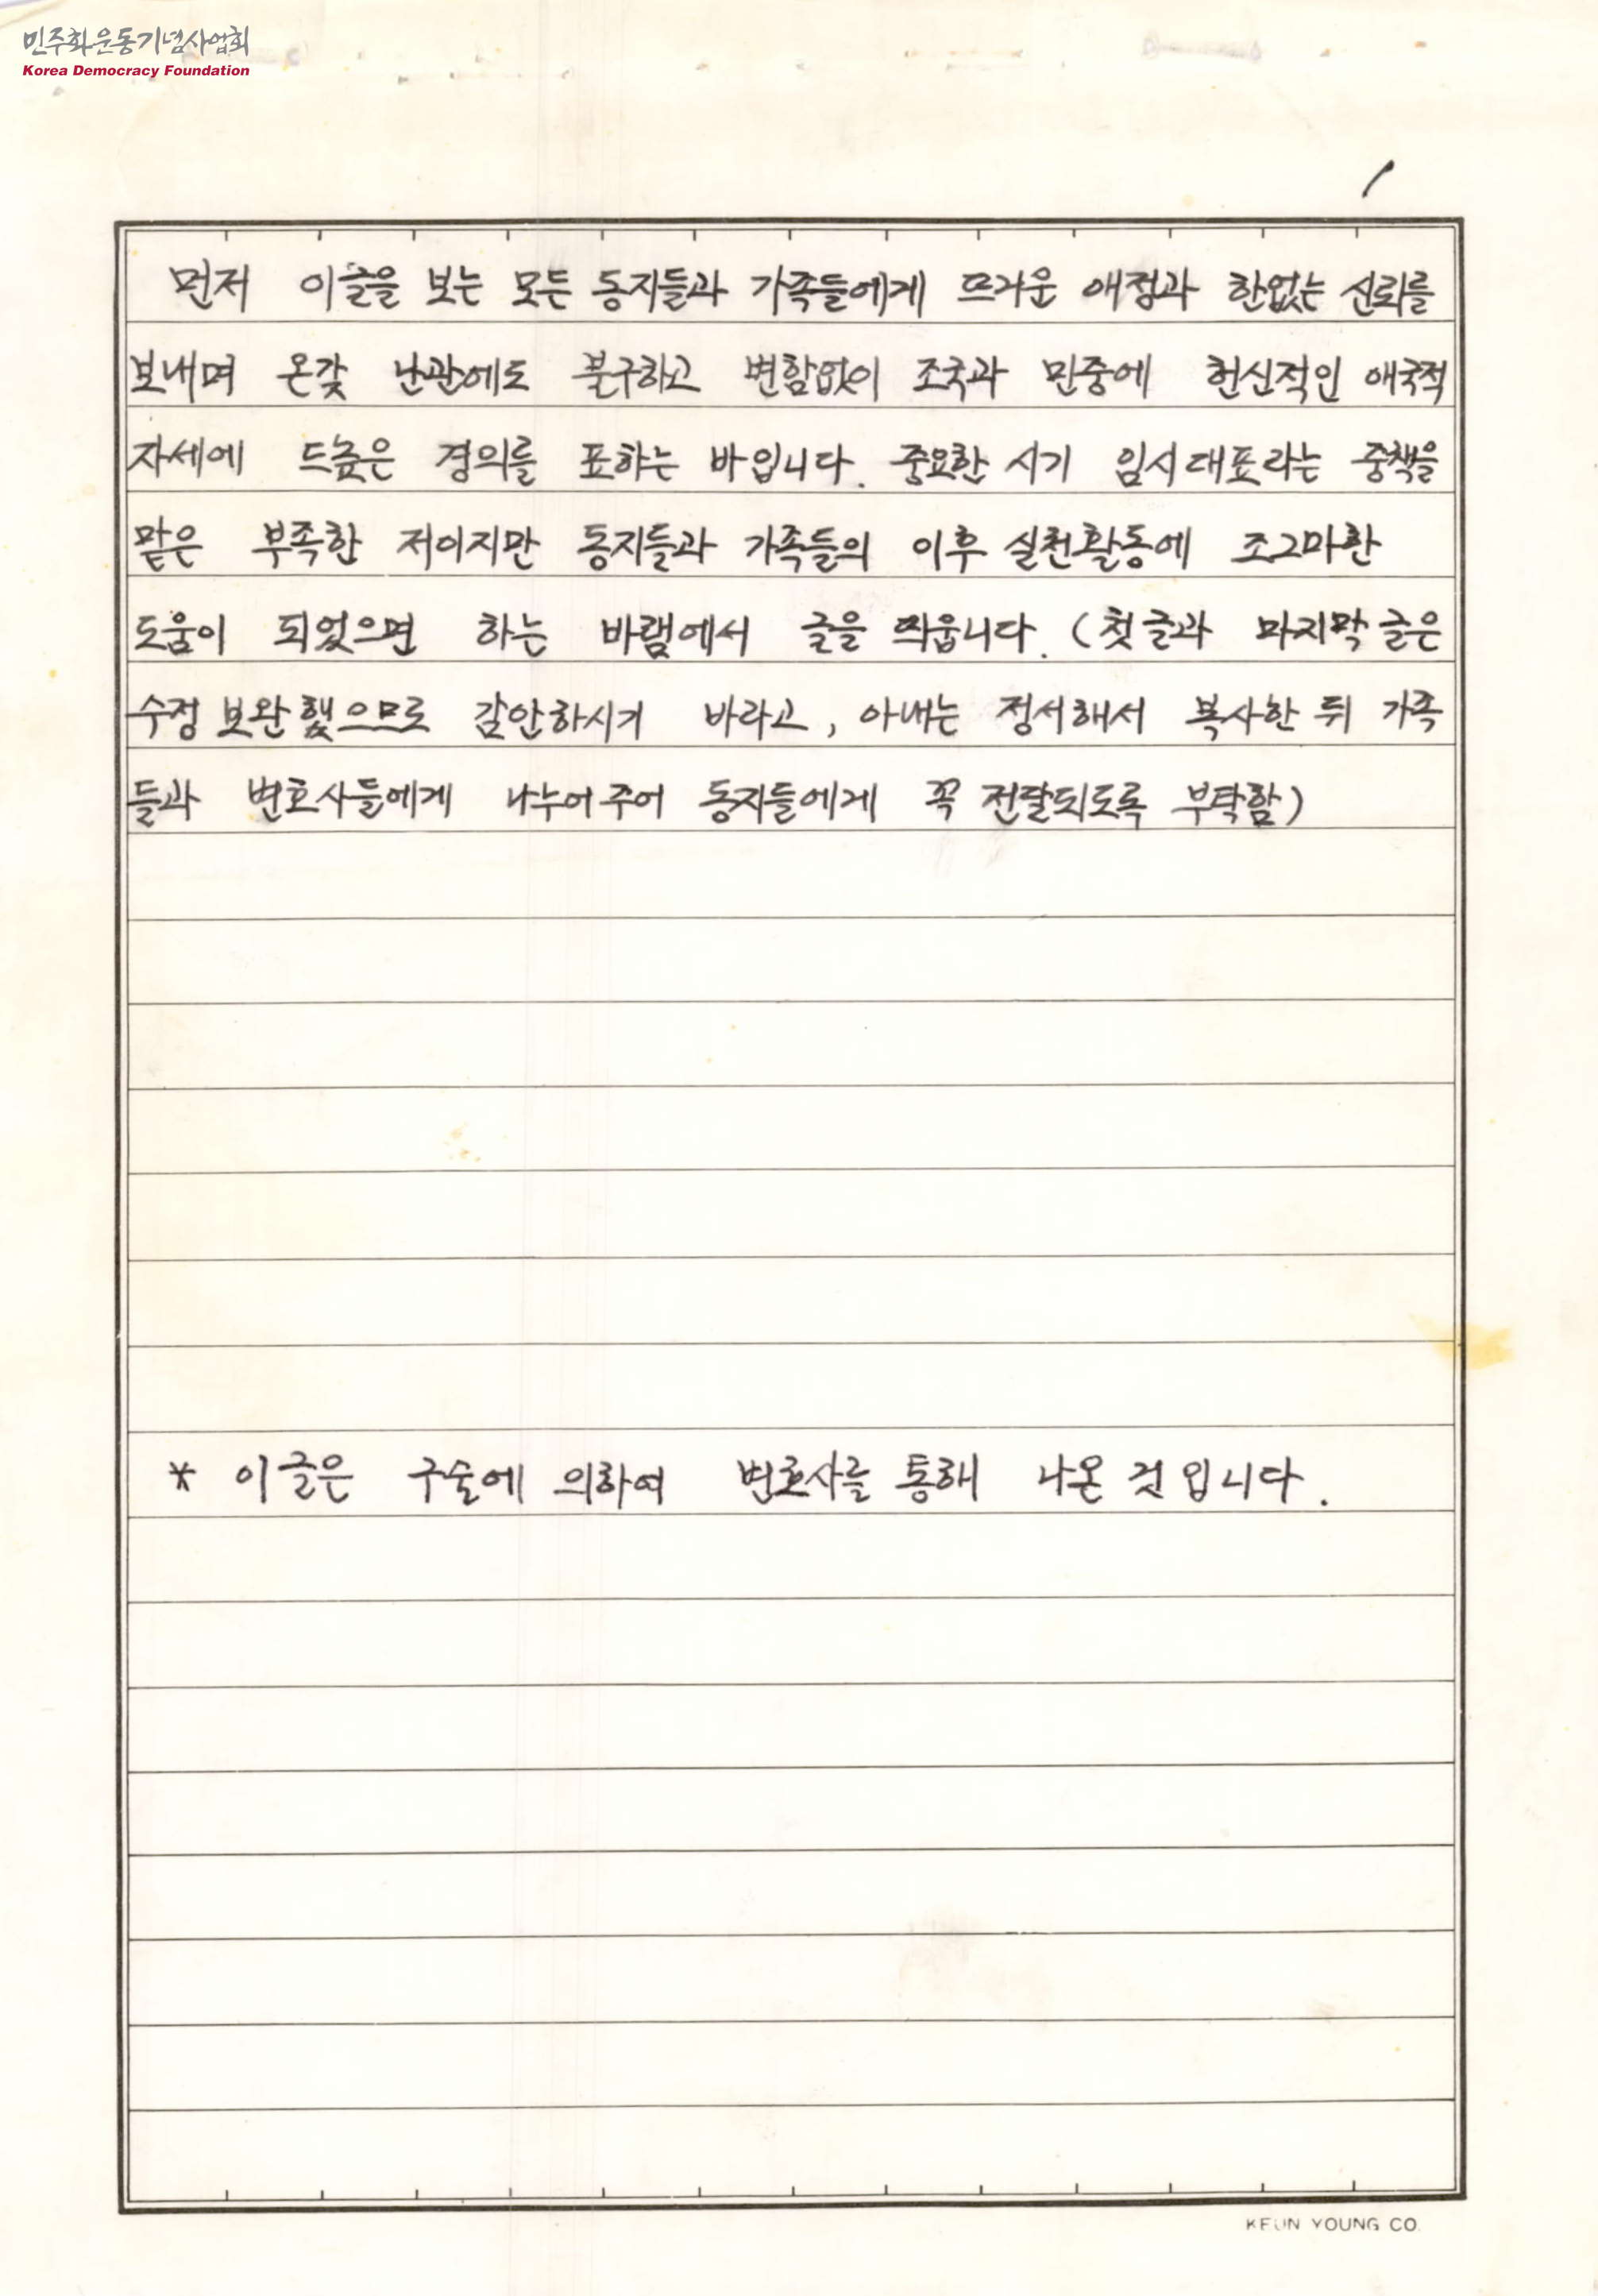 민주화운동기념사업회
Korea Democracy Foundation
1
먼저 이글을 보는 모든 동지들과 가족들에게 뜨거운 애정과 한없는 신뢰를
보내며 온갖 난관에도 불구하고 변함없이 조국과 민중에 헌신적인 애국적
자세에 드높은 경의를 표하는 바입니다. 중요한 시기 임시대표라는 중책을
맡은 부족한 저이지만 동지들과 가족들의 이후 실천활동에 조그마한
도움이 되었으면 하는 바램에서 글을 띄웁니다. (첫글과 마지막 글은
수정 보완했으므로 감안하시기 바라고, 아내는 정서해서 복사한 뒤 가족
들과 변호사들에게 나누어주어 동지들에게 꼭 전달되도록 부탁함)
* 이글은 구술에 의하여 변호사를 통해 나온 것입니다.
KEUN YOUNG CO.